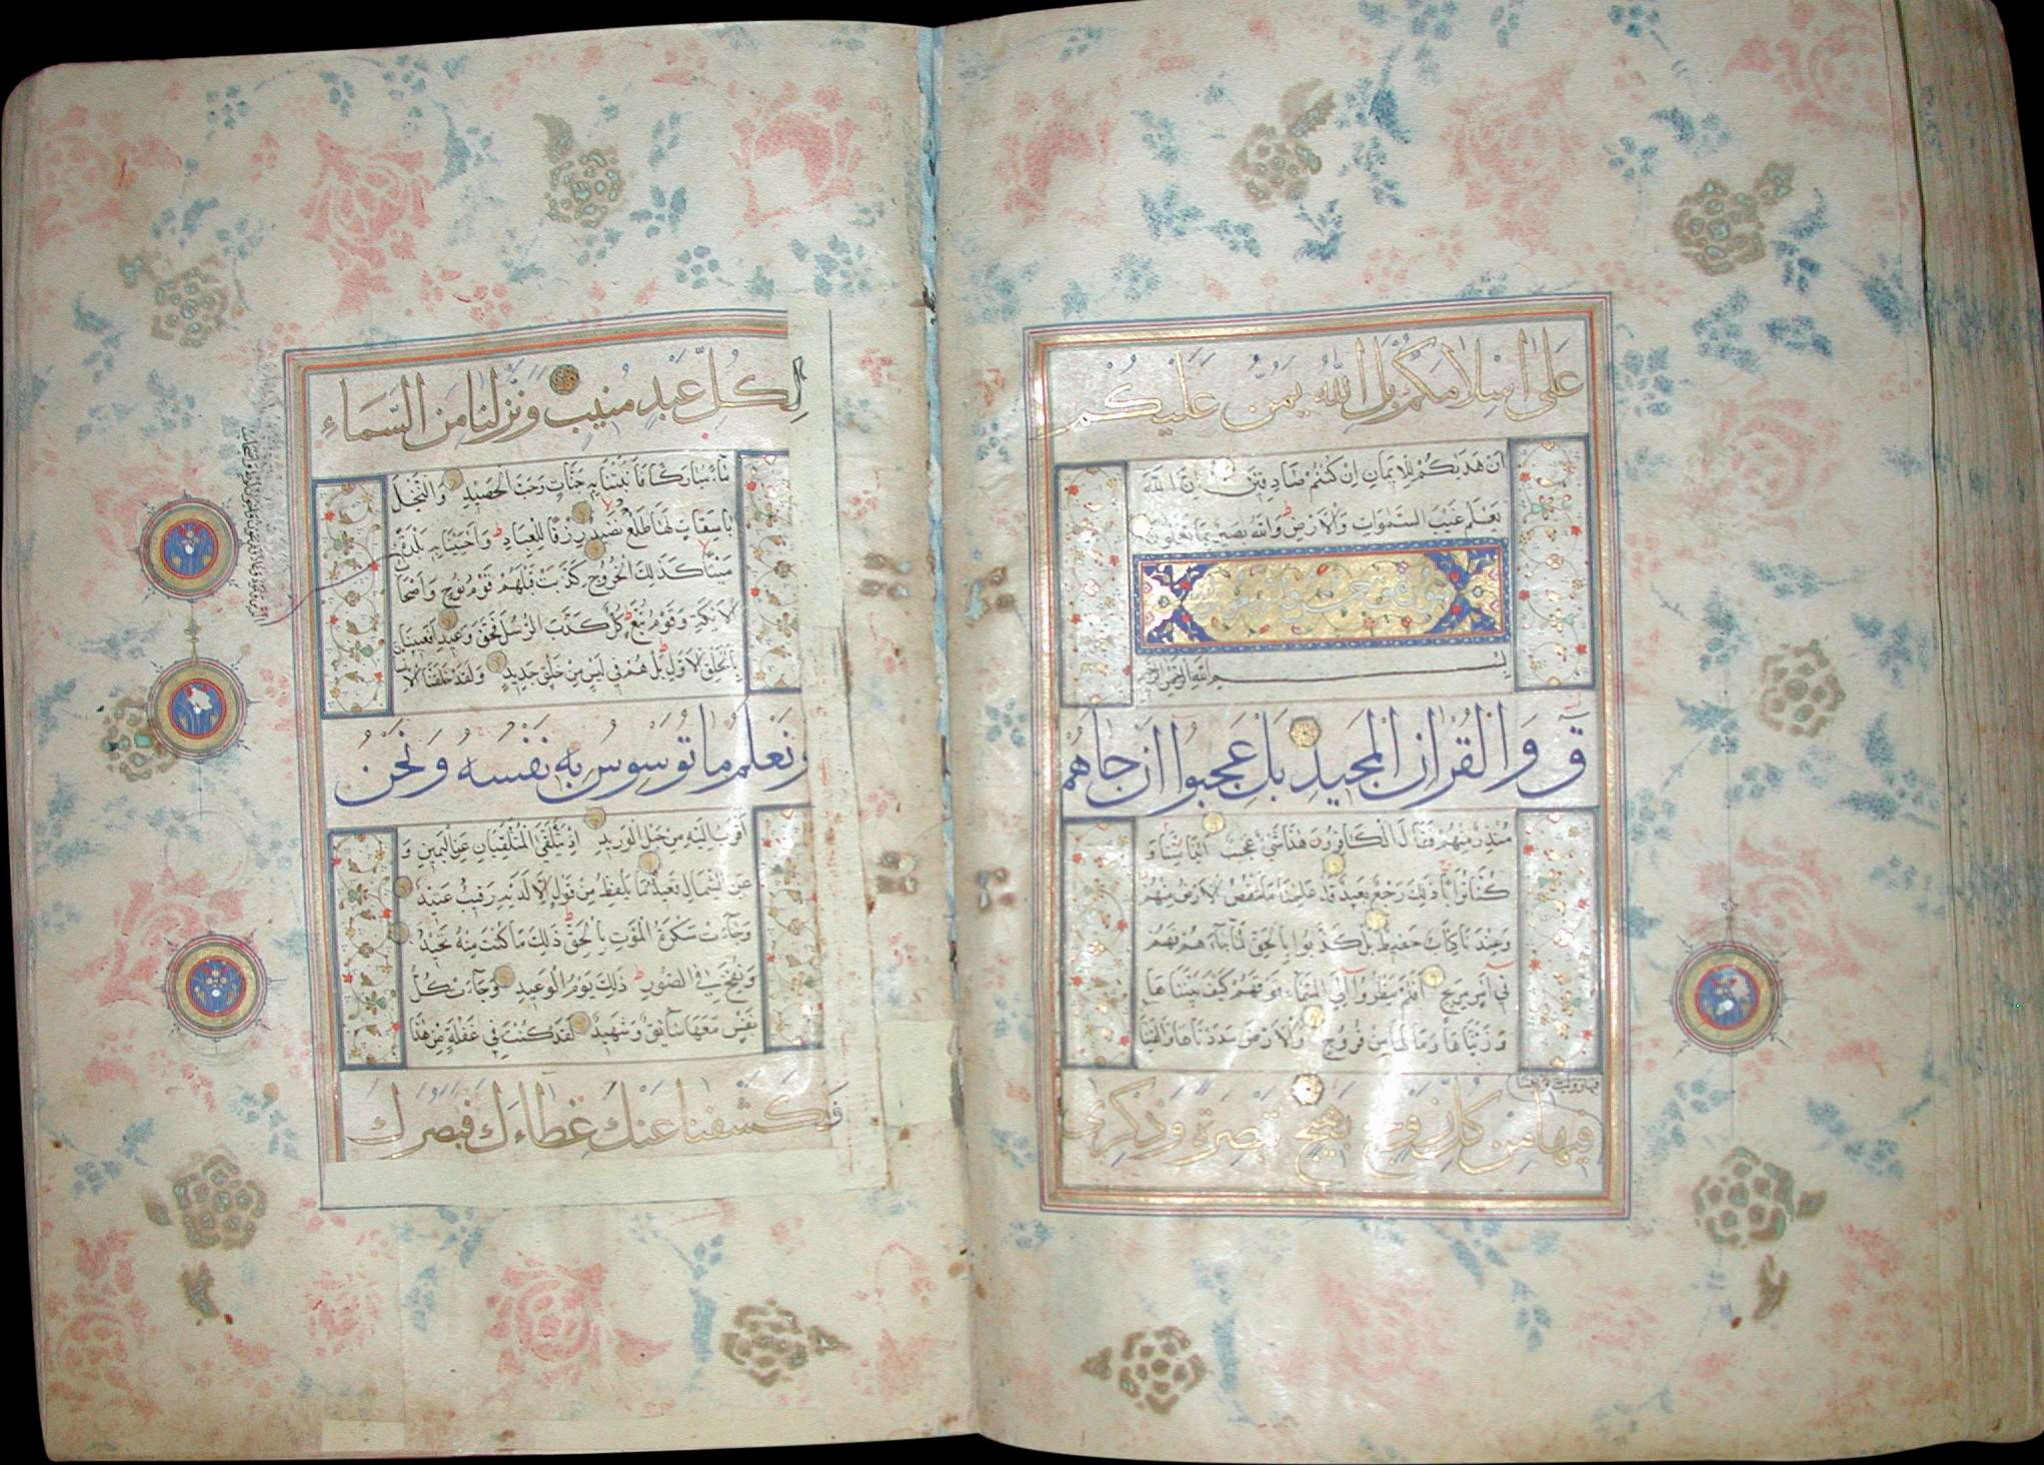 عَلَى اِسْلَامَكُمْ بَلِ اللهُ يَمُنُّ عَلَيْكُمْ
اَنْ هَدَيكُمْ لِلْاِيمَانِ اِنْ كُنْتُمْ صَادِقِينَ اِنَّ اللهَ
يَعْلَمُ غَيْبَ السَّمٰوَاتِ وَالْاَرْضِ وَاللهُ بَصِيرٌ بِمَا تَعْمَلُونَ
بسم الله الرحمن الرحيم
قٓ وَالْقُرْاٰنِ الْمَجِيدِ بَلْ عَجِبُوا اَنْ جَاءَهُمْ
مُنْذِرٌ مِنْهُمْ فَقَالَ الْكَافِرُونَ هٰذَا شَىْءٌ عَجِيبٌ اَئِذَا مِتْنَا وَ
كُنَّا تُرَابًا ذٰلِكَ رَجْعٌ بَعِيدٌ قَدْ عَلِمْنَا مَا تَنْقُصُ الْاَرْضُ مِنْهُمْ
وَعِنْدَنَا كِتَابٌ حَفِيظٌ بَلْ كَذَّبُوا بِالْحَقِّ لَمَّا جَاءَهُمْ فَهُمْ
فِى اَمْرٍ مَرِيجٍ اَفَلَمْ يَنْظُرُوا اِلَى السَّمَاءِ فَوْقَهُمْ كَيْفَ بَنَيْنَاهَا
وَزَيَّنَّاهَا وَمَا لَهَا مِنْ فُرُوجٍ وَالْاَرْضَ مَدَدْنَاهَا وَاَلْقَيْنَا
فِيهَا مِنْ كُلِّ زَوْجٍ بَهِيجٍ تَبْصِرَةً وَذِكْرٰى
لِكُلِّ عَبْدٍ مُنِيبٍ وَنَزَّلْنَا مِنَ السَّمَاءِ
مَاءً مُبَارَكًا فَاَنْبَتْنَا بِهِ جَنَّاتٍ وَحَبَّ الْحَصِيدِ وَالنَّخْلَ
بَاسِقَاتٍ لَهَا طَلْعٌ نَضِيدٌ رِزْقًا لِلْعِبَادِ وَاَحْيَيْنَا بِهِ بَلْدَةً
مَيْتًا كَذٰلِكَ الْخُرُوجُ كَذَّبَتْ قَبْلَهُمْ قَوْمُ نُوحٍ وَاَصْحَا
الْاَيْكَةِ وَقَوْمُ تُبَّعٍ كُلٌّ كَذَّبَ الرُّسُلَ فَحَقَّ وَعِيدِ اَفَعَيِينَا
بِالْخَلْقِ الْاَوَّلِ بَلْ هُمْ فِى لَبْسٍ مِنْ خَلْقٍ جَدِيدٍ وَلَقَدْ خَلَقْنَا الْاِ
وَنَعْلَمُ مَا تُوَسْوِسُ بِهِ نَفْسُهُ وَنَحْنُ
اَقْرَبُ اِلَيْهِ مِنْ حَبْلِ الْوَرِيدِ اِذْ يَتَلَقَّى الْمُتَلَقِّيَانِ عَنِ الْيَمِينِ وَ
عَنِ الشِّمَالِ قَعِيدٌ مَا يَلْفِظُ مِنْ قَوْلٍ اِلَّا لَدَيْهِ رَقِيبٌ عَتِيدٌ
وَجَاءَتْ سَكْرَةُ الْمَوْتِ بِالْحَقِّ ذٰلِكَ مَا كُنْتَ مِنْهُ تَحِيدُ
وَنُفِخَ فِى الصُّورِ ذٰلِكَ يَوْمُ الْوَعِيدِ وَجَاءَتْ كُلُّ
نَفْسٍ مَعَهَا سَائِقٌ وَشَهِيدٌ لَقَدْ كُنْتَ فِى غَفْلَةٍ مِنْ هٰذَا
فَكَشَفْنَا عَنْكَ غِطَاءَكَ فَبَصَرُكَ